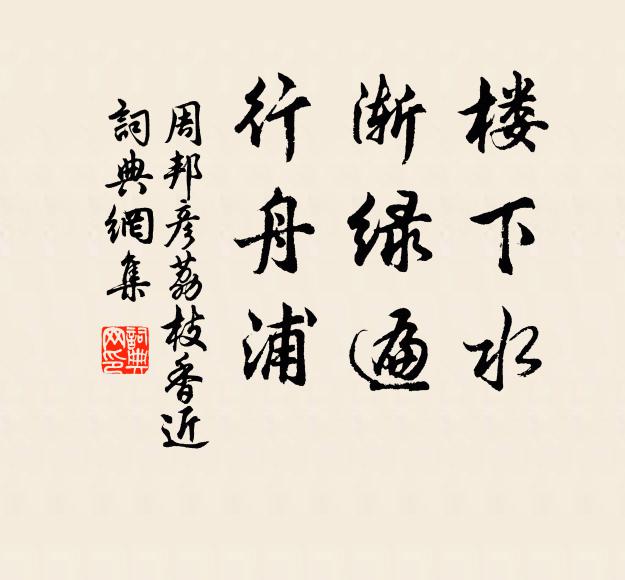 楼下水
渐绿遍
行舟浦
周邦彦荔枝香近
詞典網集
詞典网印